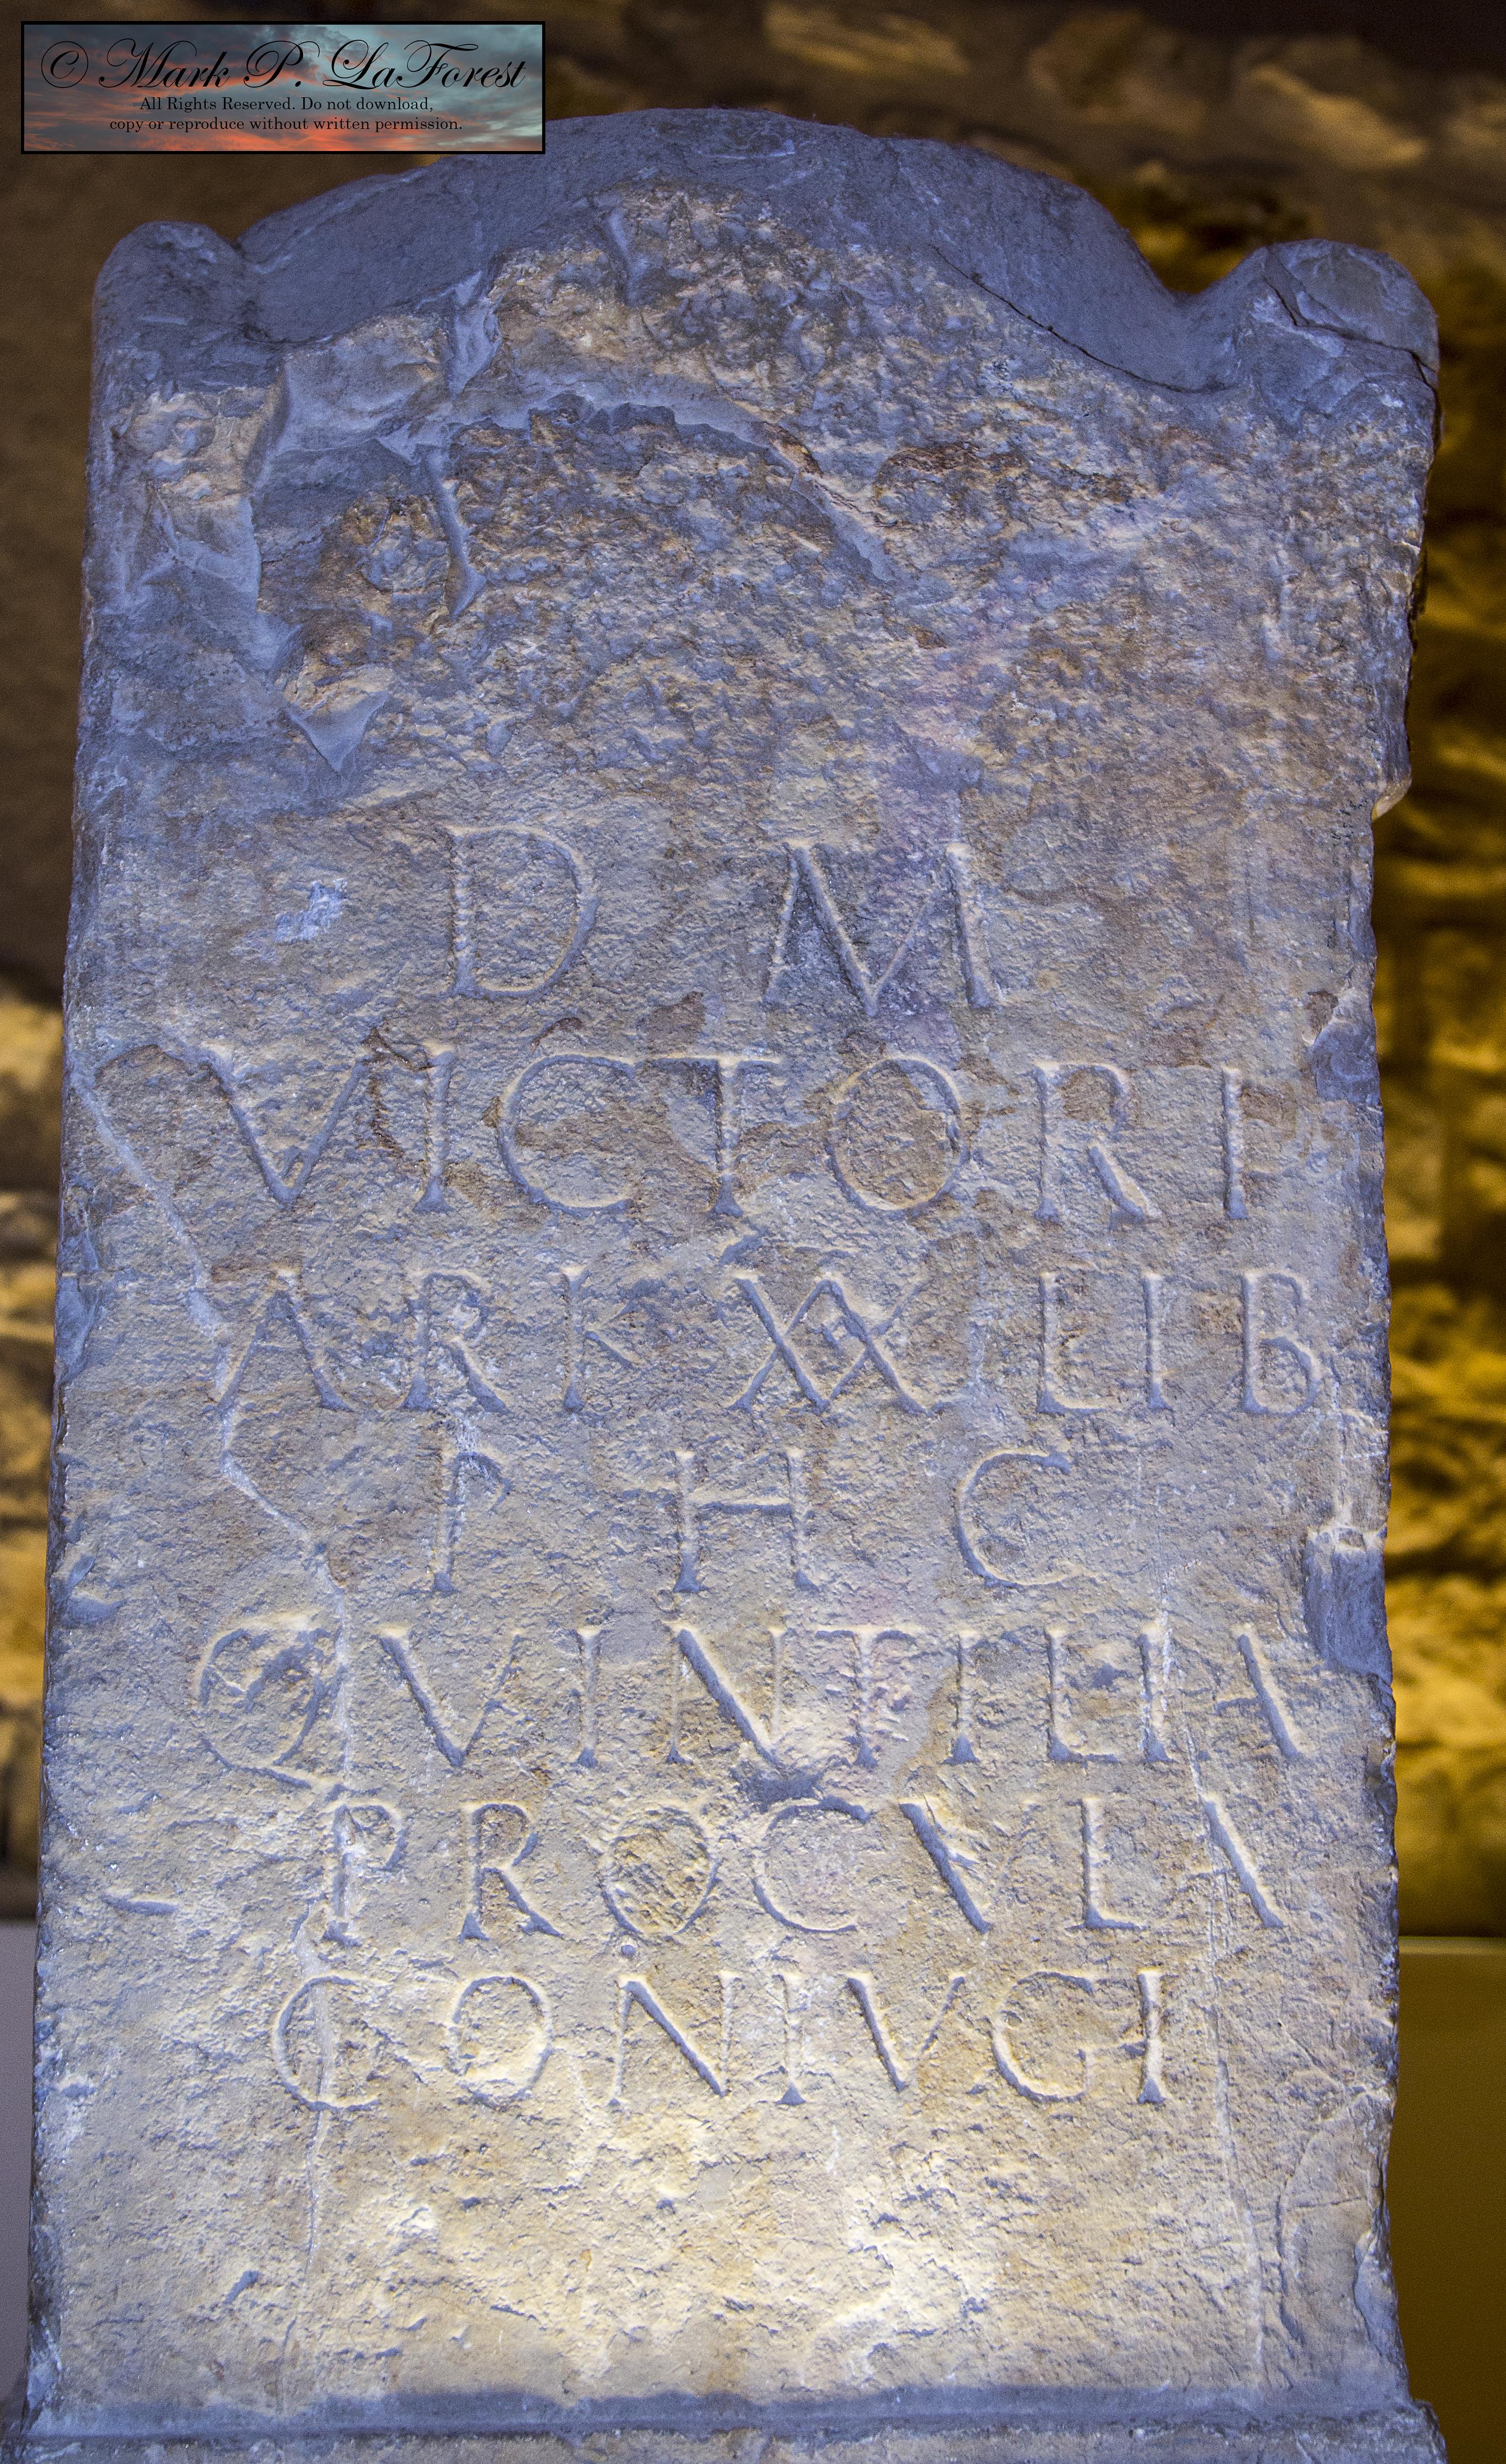 © Mark P. LaForest
All Rights Reserved. Do not download,
copy or reproduce without written permission.
D M
VICTORI
ARK XX LIB
P H C
QVINTILIA
PROCVLA
CONIVGI